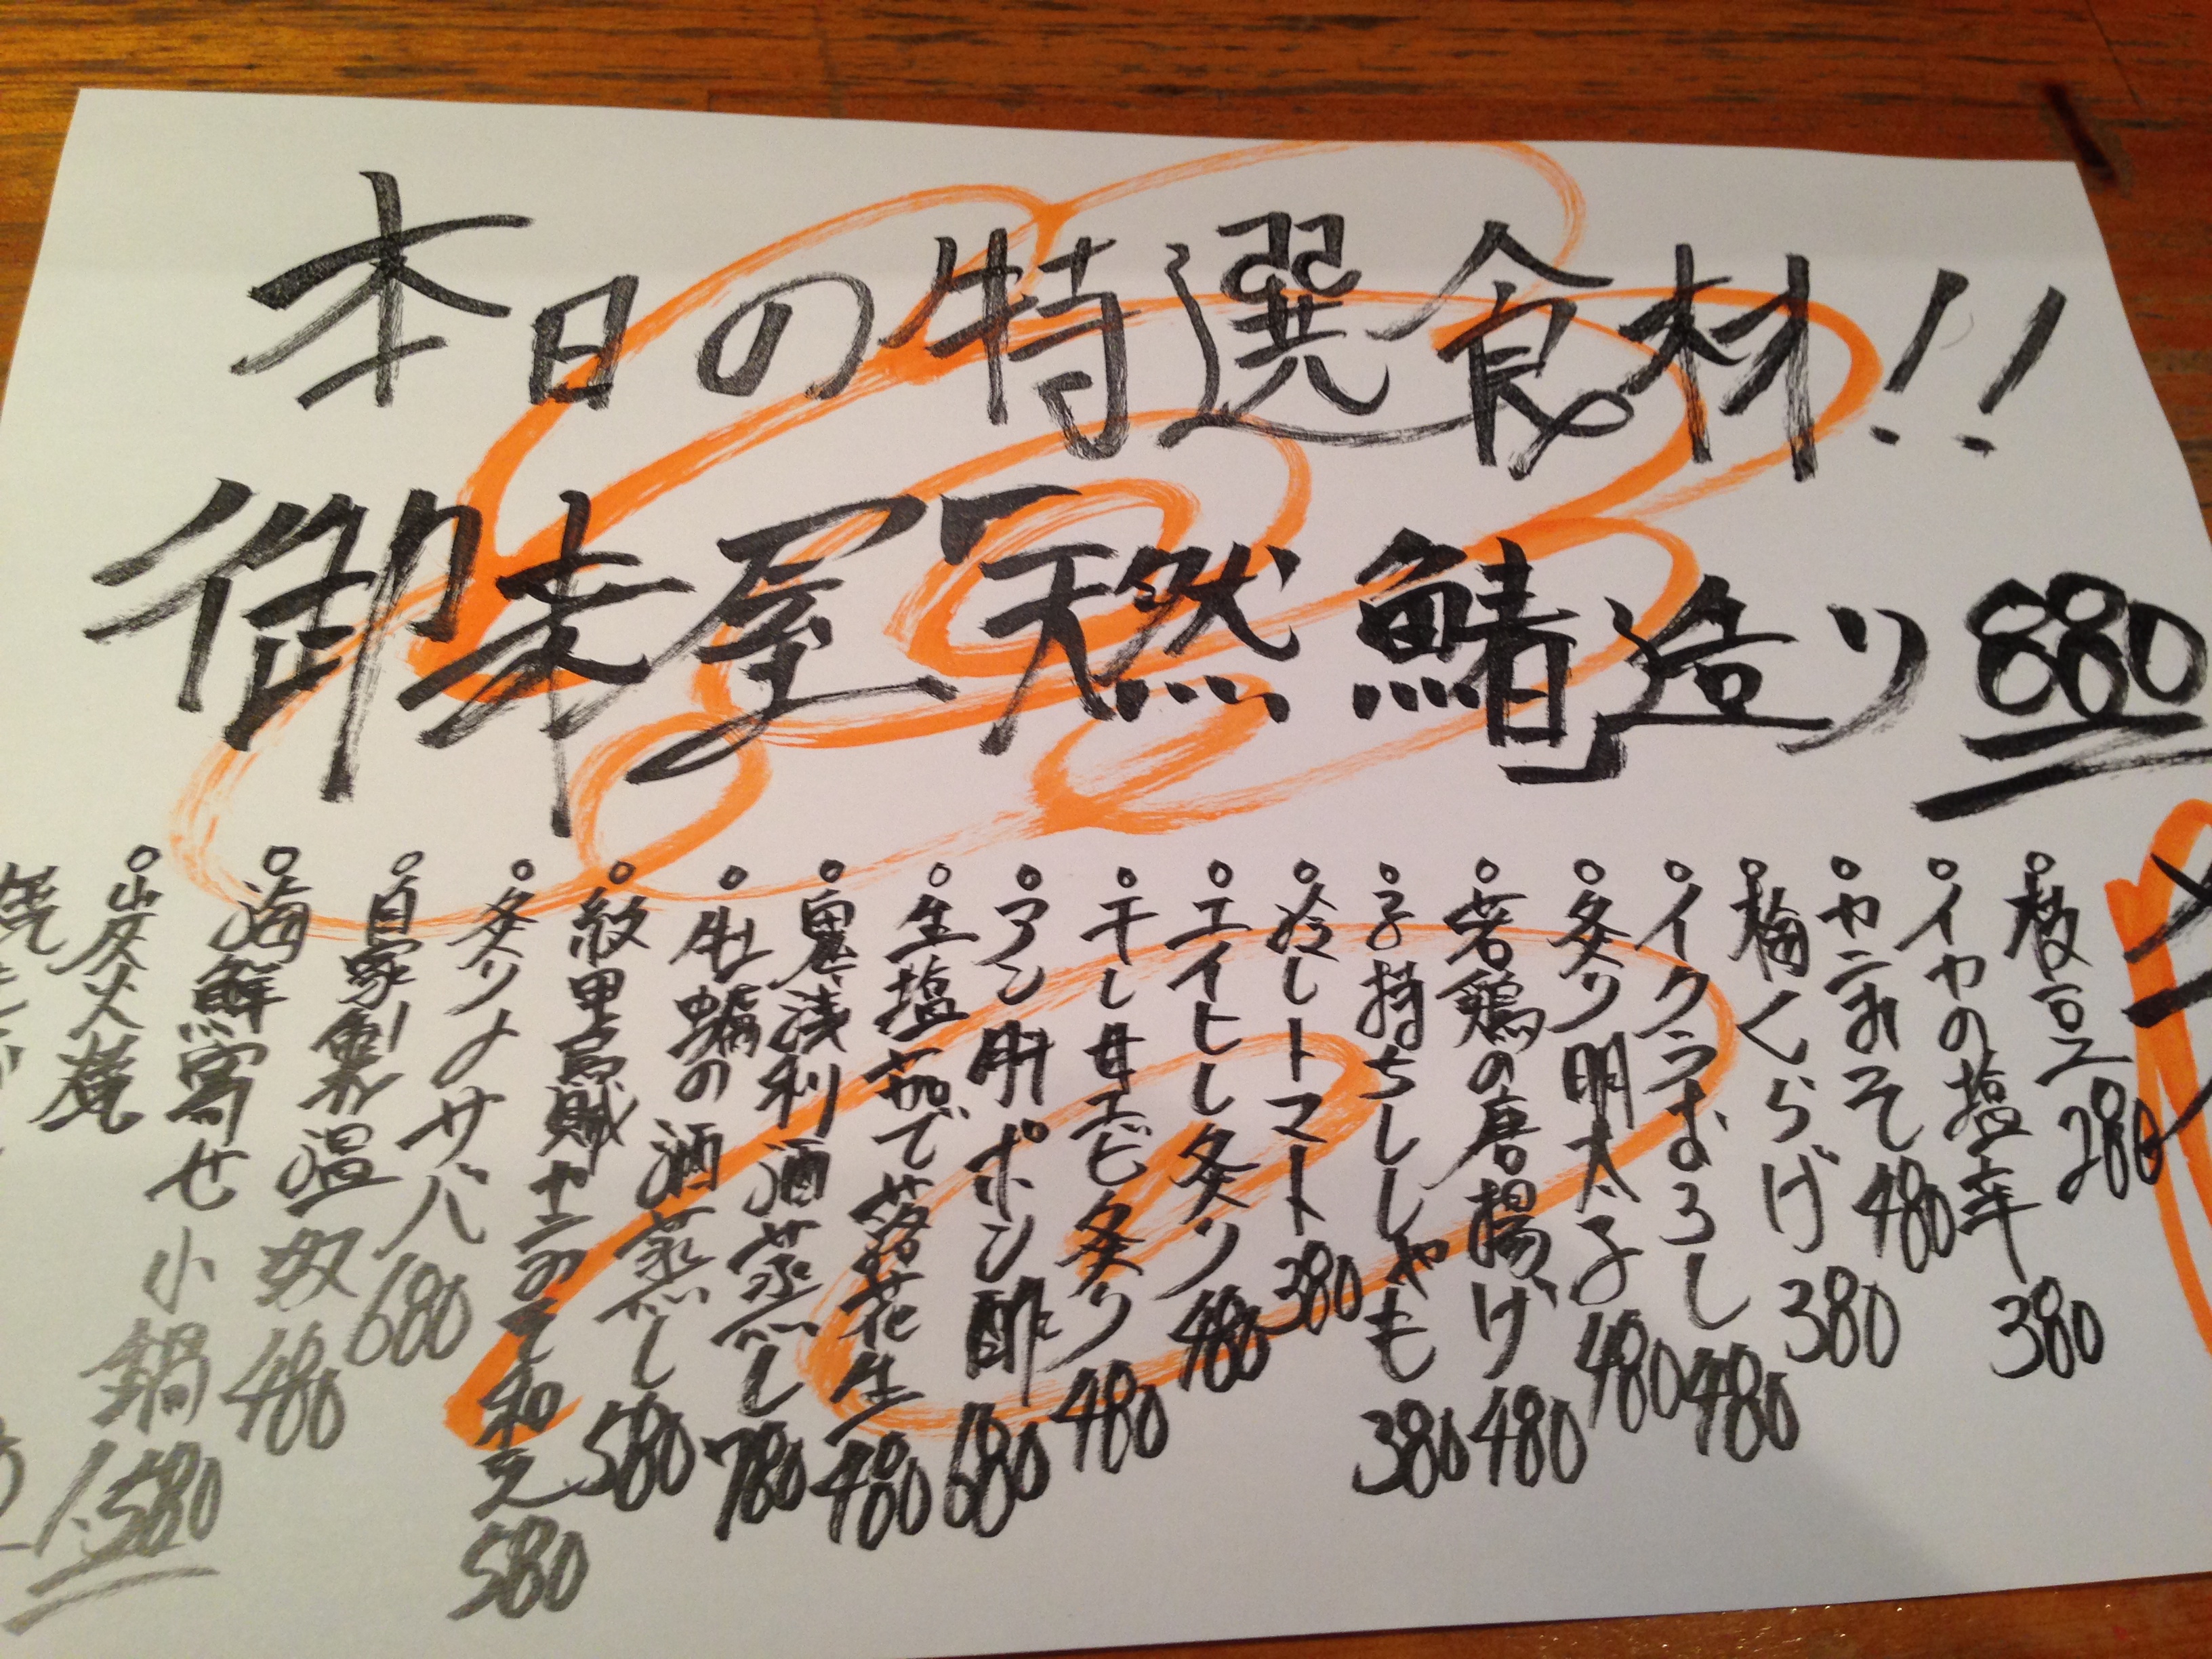 本日の特選食材!!
御幸屋「天然鯖」造り 880
枝豆 280
イカの塩辛 380
カニみそ 480
梅くらげ 380
イクラおろし 480
炙り明太子 480
若鶏の唐揚げ 480
子持ちししゃも 380
冷しトマト 380
エイヒレ炙り 480
干し甘エビ炙り 480
アン肝ポン酢 680
生塩茹で落花生 480
鬼浅利酒蒸し 780
牡蠣の酒蒸し 580
紋甲烏賊カニみそ和え 580
炙り〆サバ 680
自家製温奴 480
海鮮寄せ小鍋 1,580
炭火焼